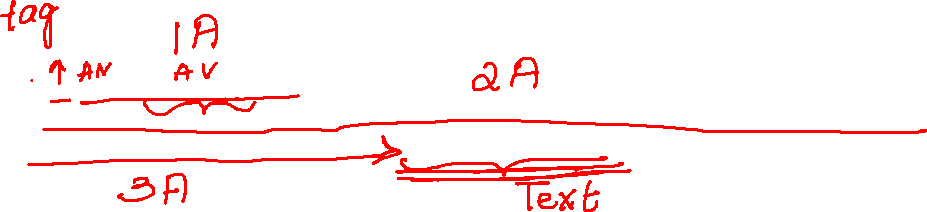 tag
1A
AN AV
2A
3A
Text